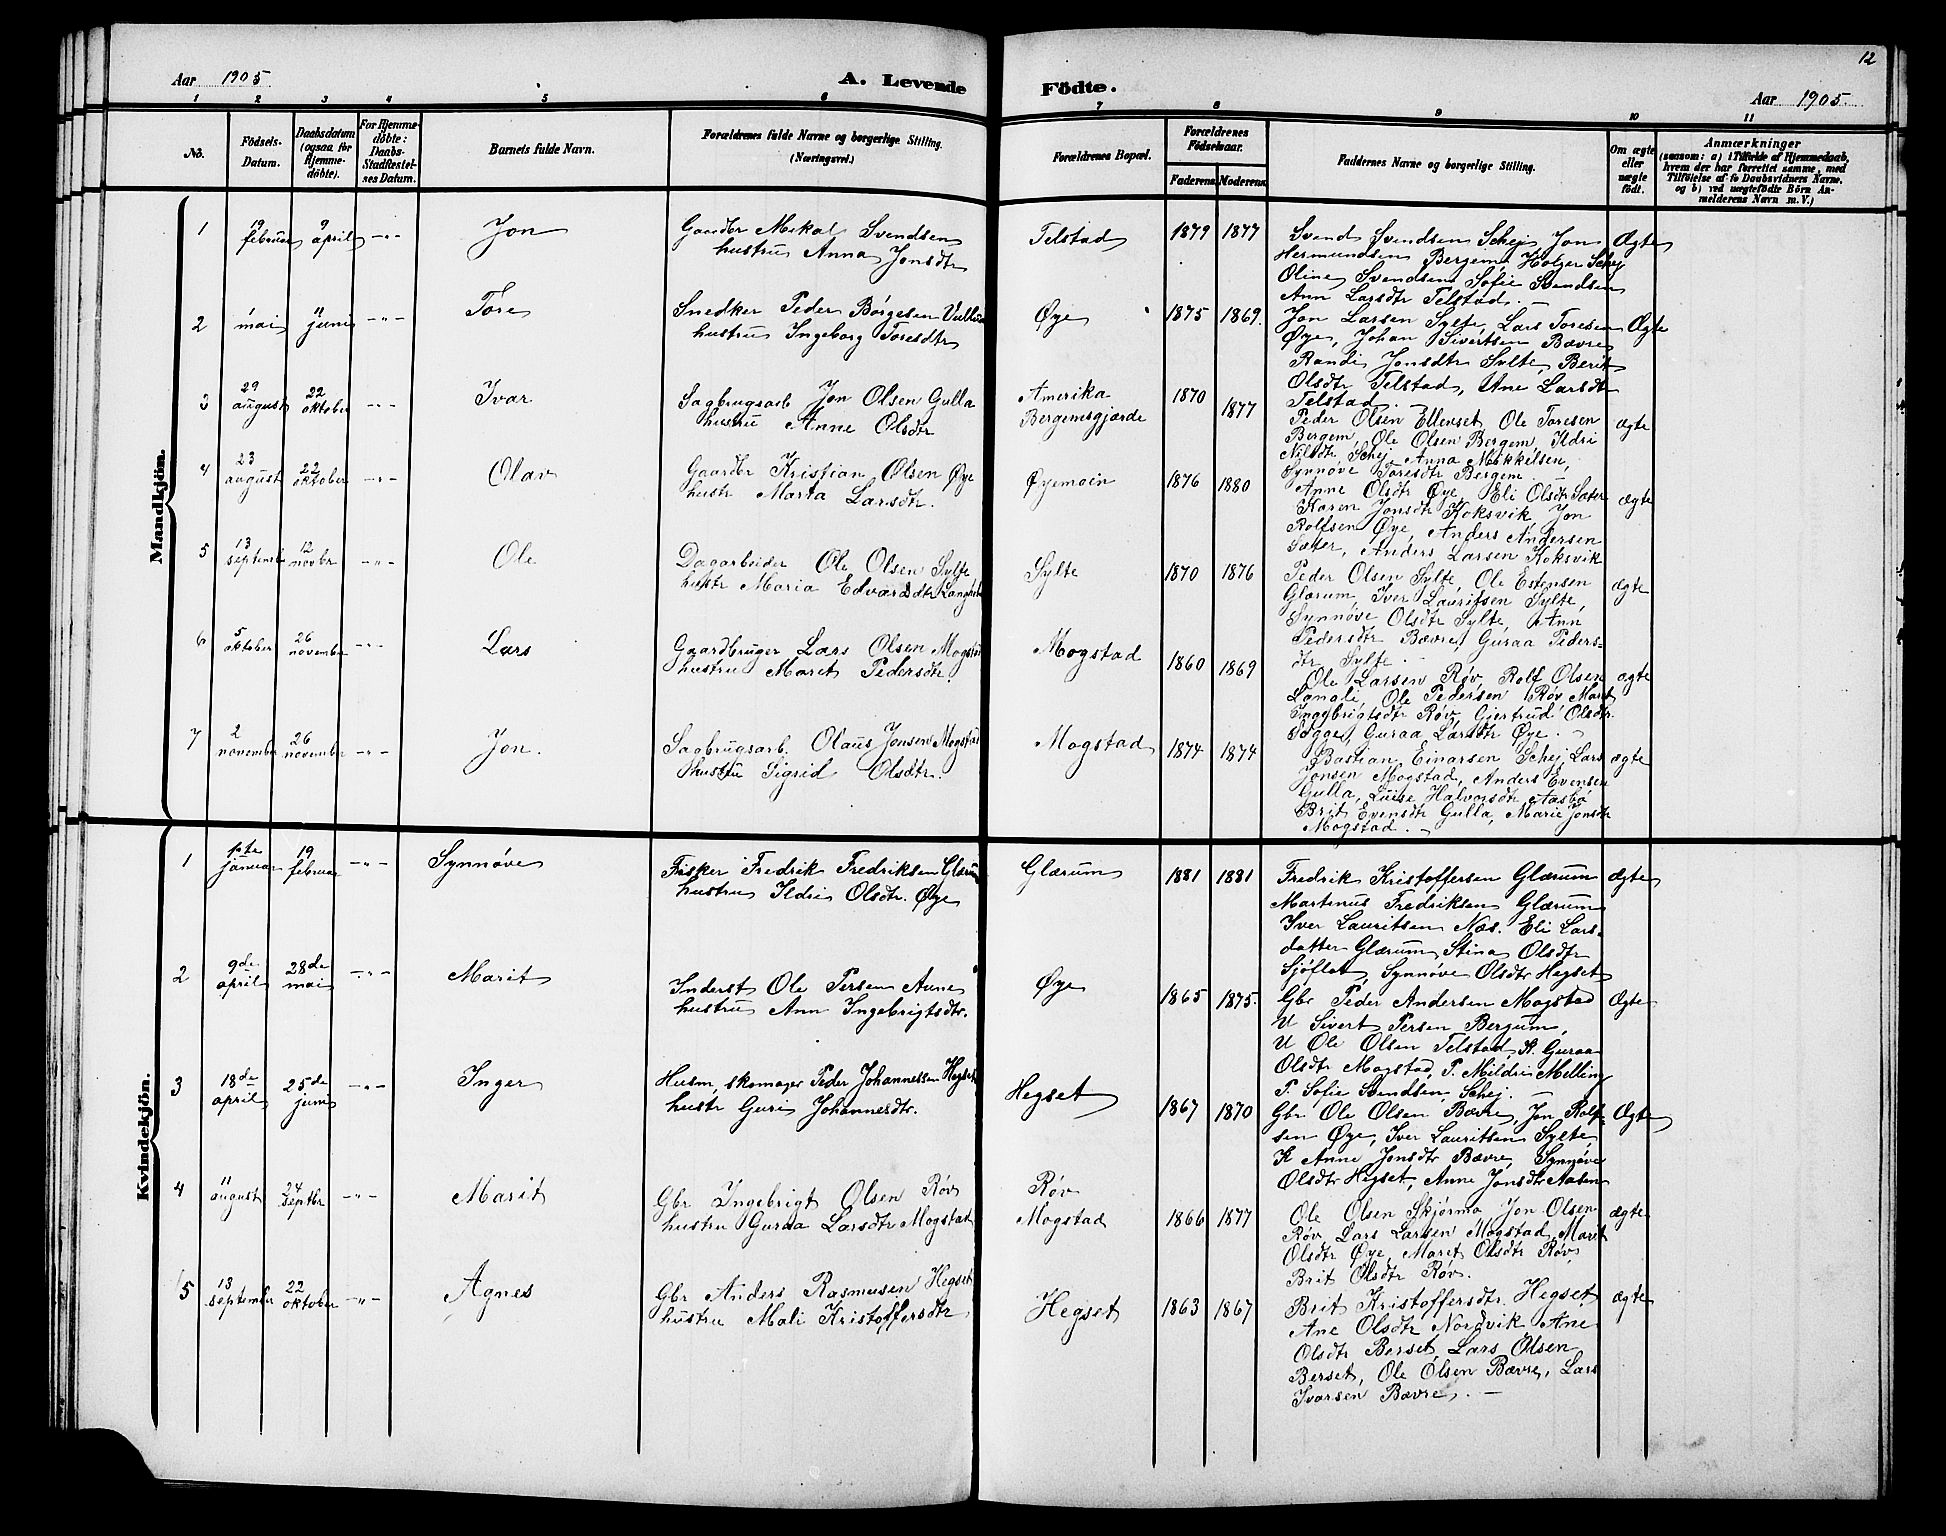 12
Aar 1905
A. Levende Födte.
Aar 1905.
1 2 3 4 5 6 7 8 9 10 11
No.
Födsels-
Datum.
Daabsdatum
(ogsaa for
Hjemme-
döbte).
For Hjemme-
döbte:
Daabs-
Stadfæstel-
ses Datum.
Barnets fulde Navn.
Forældrenes fulde Navne og borgerlige Stilling.
(Næringsvei.)
Forældrenes Bopæl.
Forældrenes
Födselsaar.
Faderens. Moderens.
Faddernes Navne og borgerlige Stilling.
Om ægte
eller
uægte
födt.
Anmærkninger
(saasom: a) i Tilfælde af Hjemmedaab,
hvem der har forrettet samme, med
Tilföielse af to Daabsvidners Navne,
og b) ved uægtefödte Börn An-
melderens Navn m.V.)
Mandkjön.
1
19 februar
9 april
-"-
Jon
Gaardbr Mekal Svendsen
hustru Anna Jonsdtr
Telstad
1879 1877
Svend Svendsen Schej Jon
Hermundsen Bergem, Holger Schej
Oline Svendsen, Sofie Svendsen
Ann Larsdtr Telstad. -
Ægte
2
mai
11 juni
-"-
Tore
Snedker Peder Börgesen Vullum
hustru Ingeborg Toresdtr
Øye
1875 1869.
Jon Larsen Sylte, Lars Toresen
Øye, Johan Sivertsen Bævre
Randi Jonsdtr Sylte, Berit
Olsdtr Telstad, Ane Larsdtr
Telstad.
Ægte
3
29 august
22 oktober
-"-
Ivar
Sagbrugsarb Jon Olsen Gulla
hustru Anne Olsdtr
Amerika
Bergemsgjærde
1870 1877
Peder Olsen Ellenset, Ole Toresen
Bergem, Ole Olsen Bergem, Ildri
Nilsdtr Schej, Anna Mikkelsen,
Synnöve Toresdtr Bergem -
ægte
4
23 august
22 oktober
-"-
Olav
Gaardbr Kristian Olsen Øye
hustr Marta Larsdtr.
Øyemoin
1876 1880
Anne Olsdtr Øye, Eli Olsdtr Sæter
Karen Jonsdtr Koksvik Jon
Rolfsen Øye, Anders Andersen
Sæter, Anders Larsen Koksvik
ægte
5
13 septemb
12 novbr
-"-
Ole
Dagarbeider Ole Olsen Sylte
hustr Maria Edvardsdtr
Sylte
1870 1876
Peder Olsen Sylte, Ole Estensen
Glærum Iver Lauritsen Sylte,
Synnöve Olsdtr Sylte, Ann
Pedersdtr Bævre, Guraa Peders-
dtr Sylte. -
ægte
6
5 oktober
26 november
-"-
Lars
Gaardbruger Lars Olsen Mogstad
hustru Marit Pedersdtr.
Mogstad
1860 1869
Ole Larsen Røv, Rolf Olsen
Langli, Ole Pedersen Røv Marit
Ingebrigtsdtr Røv, Gjertrud Olsdtr
Sogge, Guraa Larsdtr Øye. -
ægte
7
2 november
26 november
-"-
Jon.
Sagbrugsarb. Olaus Jonsen Mogstad
hustru Sigrid Olsdtr.
Mogstad
1874 1874
Bastian Einarsen Schej Lars
Jonsen Mogstad, Anders Evensen
Gulla, Luise Halvorsdtr Aasbö
Brit Evensdtr Gulla, Marie Jonsdtr
Mogstad. -
ægte
Kvindekjön.
1
1ste januar
19 februar
-"-
Synnøve
Fisker Fredrik Fredriksen Glærum
hustru Ildri Olsdtr. Øye
Glærum
1881 1881
Fredrik Kristoffersen Glærum
Martinus Fredriksen Glærum
Iver Lauritsen Næs. Eli Lars-
datter Glærum, Stina Olsdtr
Sjöflot, Synnöve Olsdtr Hegset
ægte
2
9de april
28de mai
-"-
Marit
Inderst Ole Persen Aune
hustru Ann Ingebrigtsdtr.
Øye
1865 1875.
Gbr Peder Andersen Mogstad
U Sivert Persen Bergum,
U Ole Olsen Telstad, K. Guraa
Olsdtr Mogstad, P. Mildri Melling
P. Sofie Svendsen, Schej. -
Ægte
3
18de april
25de juni
-"-
Inger
Husm, skomager Peder Johannessen Hegset
hustr Guri Johannesdtr.
Hegset
1867 1870
Gbr Ole Olsen Bævre, Jon Rolf-
sen Øye, Iver Lauritsen Sylte,
K Anne Jonsdtr Bævre, Synnøve
Olsdtr Hegset, Anne Jonsdtr Aasen
Ægte
4
11 august
24 septbr
-"-
Marit
Gbr Ingebrigt Olsen Røv
hustru Guraa Larsdtr Mogstad
Røv
Mogstad
1866 1877
Ole Olsen Skjörmo Jon Olsen
Røv Lars Larsen Mogstad, Marit
Olsdtr Øye, Maret Olsdtr Røv,
Brit Olsdtr Røv.
ægte
5
13 september
22 oktober
-"-
Agnes
Gbr Anders Rasmusen Hegset
hustru Mali Kristoffersdtr
Hegset
1863 1867
Brit Kristoffersdtr. Hegset,
Ane Olsdtr Nordvik Ane
Olsdtr Berset, Lars Olsen
Berset, Ole Olsen Bævre, Lars
Ivarsen Bævre. -
ægte